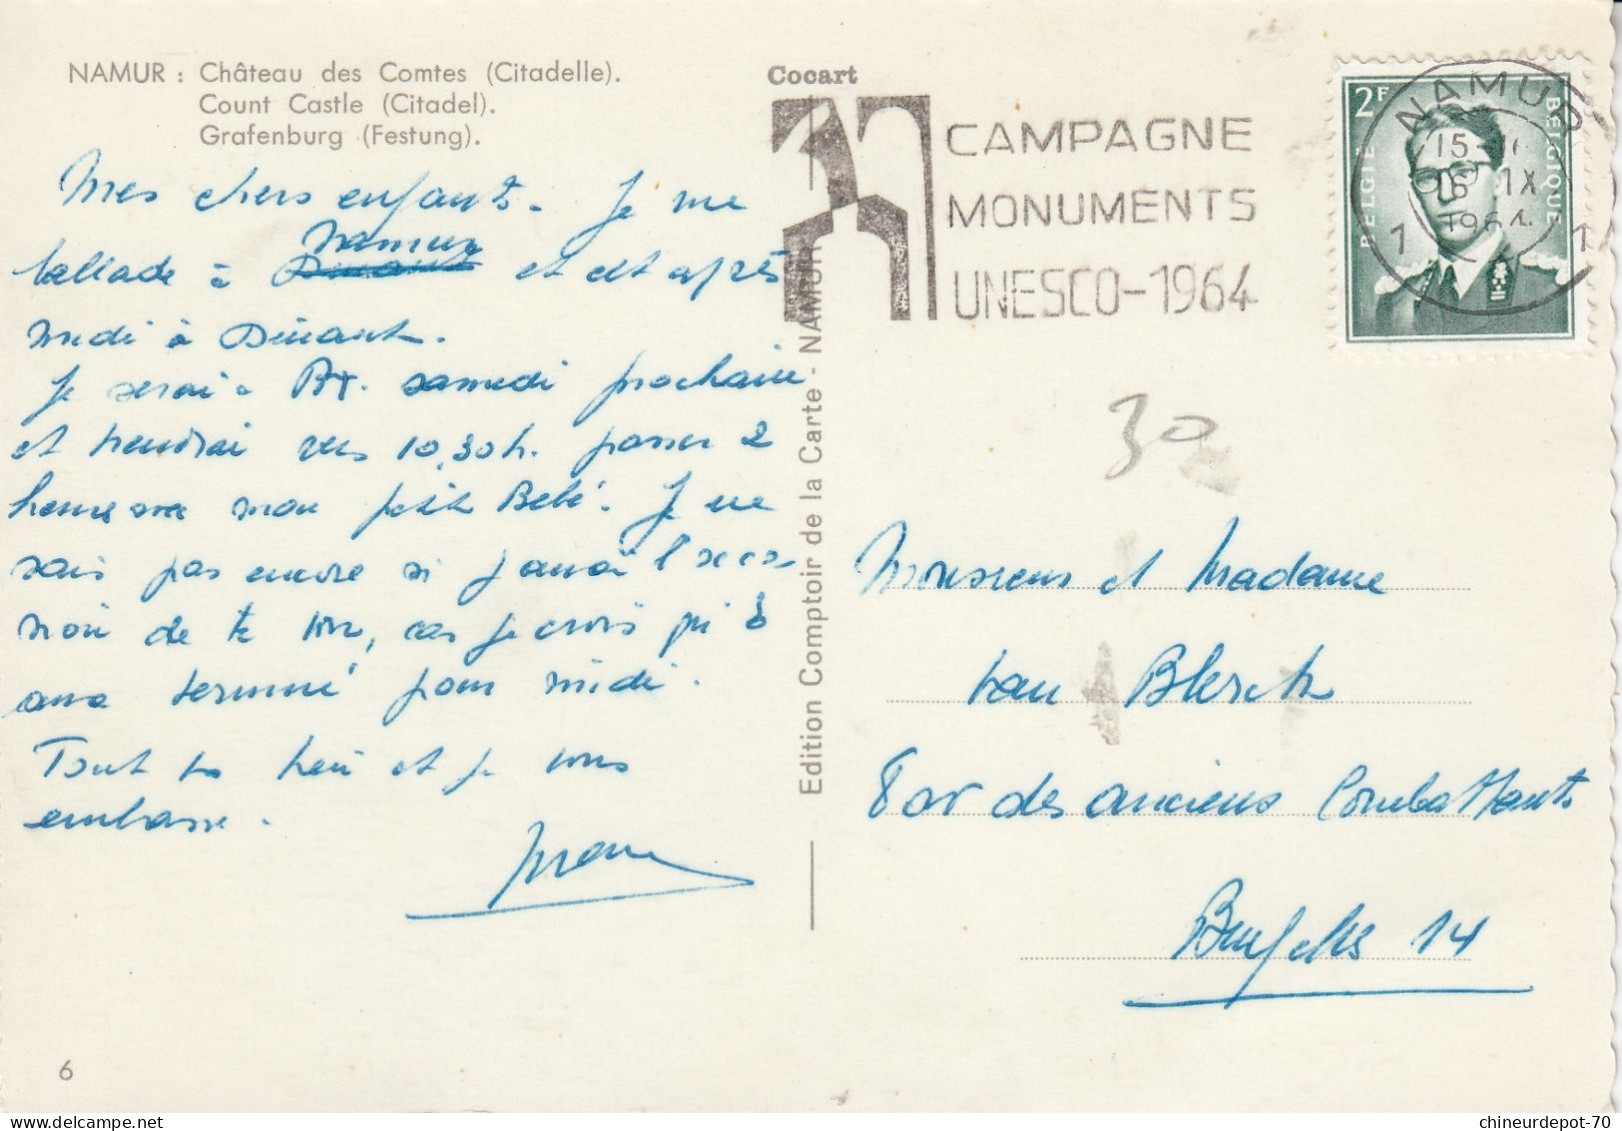 NAMUR : Château des Comtes (Citadelle).
Count Castle (Citadel).
Grafenburg (Festung).
Mes chers enfants. Je me
ballade à Namur et cet après
midi à Dinant.
Je serai à BX. samedi prochain
et viendrai vers 10,30h. passer 2
heures avec mon petit Bébé. Je ne
sais pas encore si j'aurai l'occa
sion de te voir, car je crois qu'
aura terminé pour midi.
Tout va bien et je vous
embrasse.
6
Cocart
Edition Comptoir de la Carte - NAMUR
CAMPAGNE
MONUMENTS
UNESCO-1964
2F
BELGIE BELGIQUE
NAMUR
15-
16 IX
1964
1 1
30
Monsieur et Madame
van Blerck
8 av des anciens Combattants
Bruxelles 14
chineurdepot-70